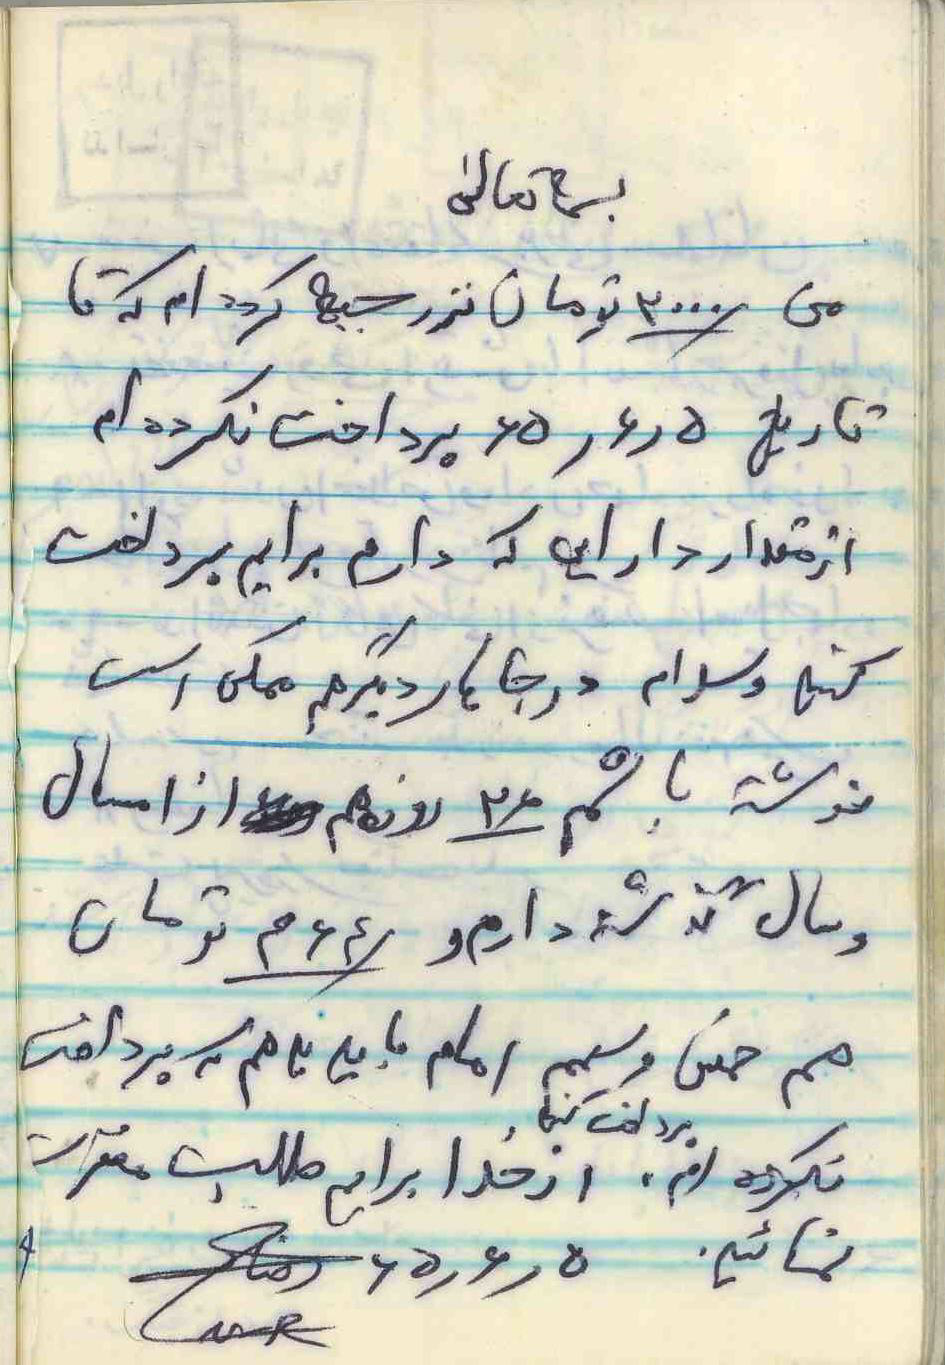 بسمه تعالی
من ۳۰۰۰/ تومان نذر جبهه کرده ام که تا
تاریخ ۶۵٫۶٫۵ پرداخت نکرده ام
از مقدار دارایی که دارم برایم پرداخت
کنید و در جاهای دیگر هم ممکن است
نوشته باشم ۲۶ روزه هم از امسال
و سال گذشته دارم و تومان
هم خمس و سهم امام باید بدهم که پرداخت
نکرده ام. پرداخت کنید از خدا برایم طلب مغفرت
نمائید. ۶۵٫۶٫۵